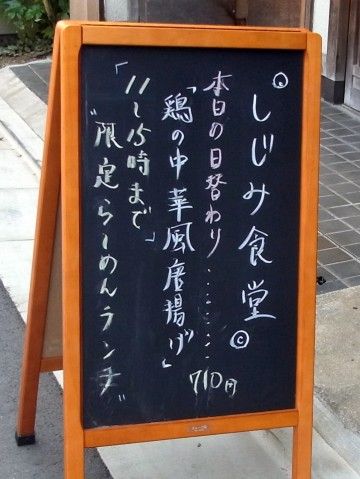 しじみ食堂©
本日の日替わり………710円
「鶏の中華風唐揚げ」
「11〜15時まで」
"限定らーめんランチ"